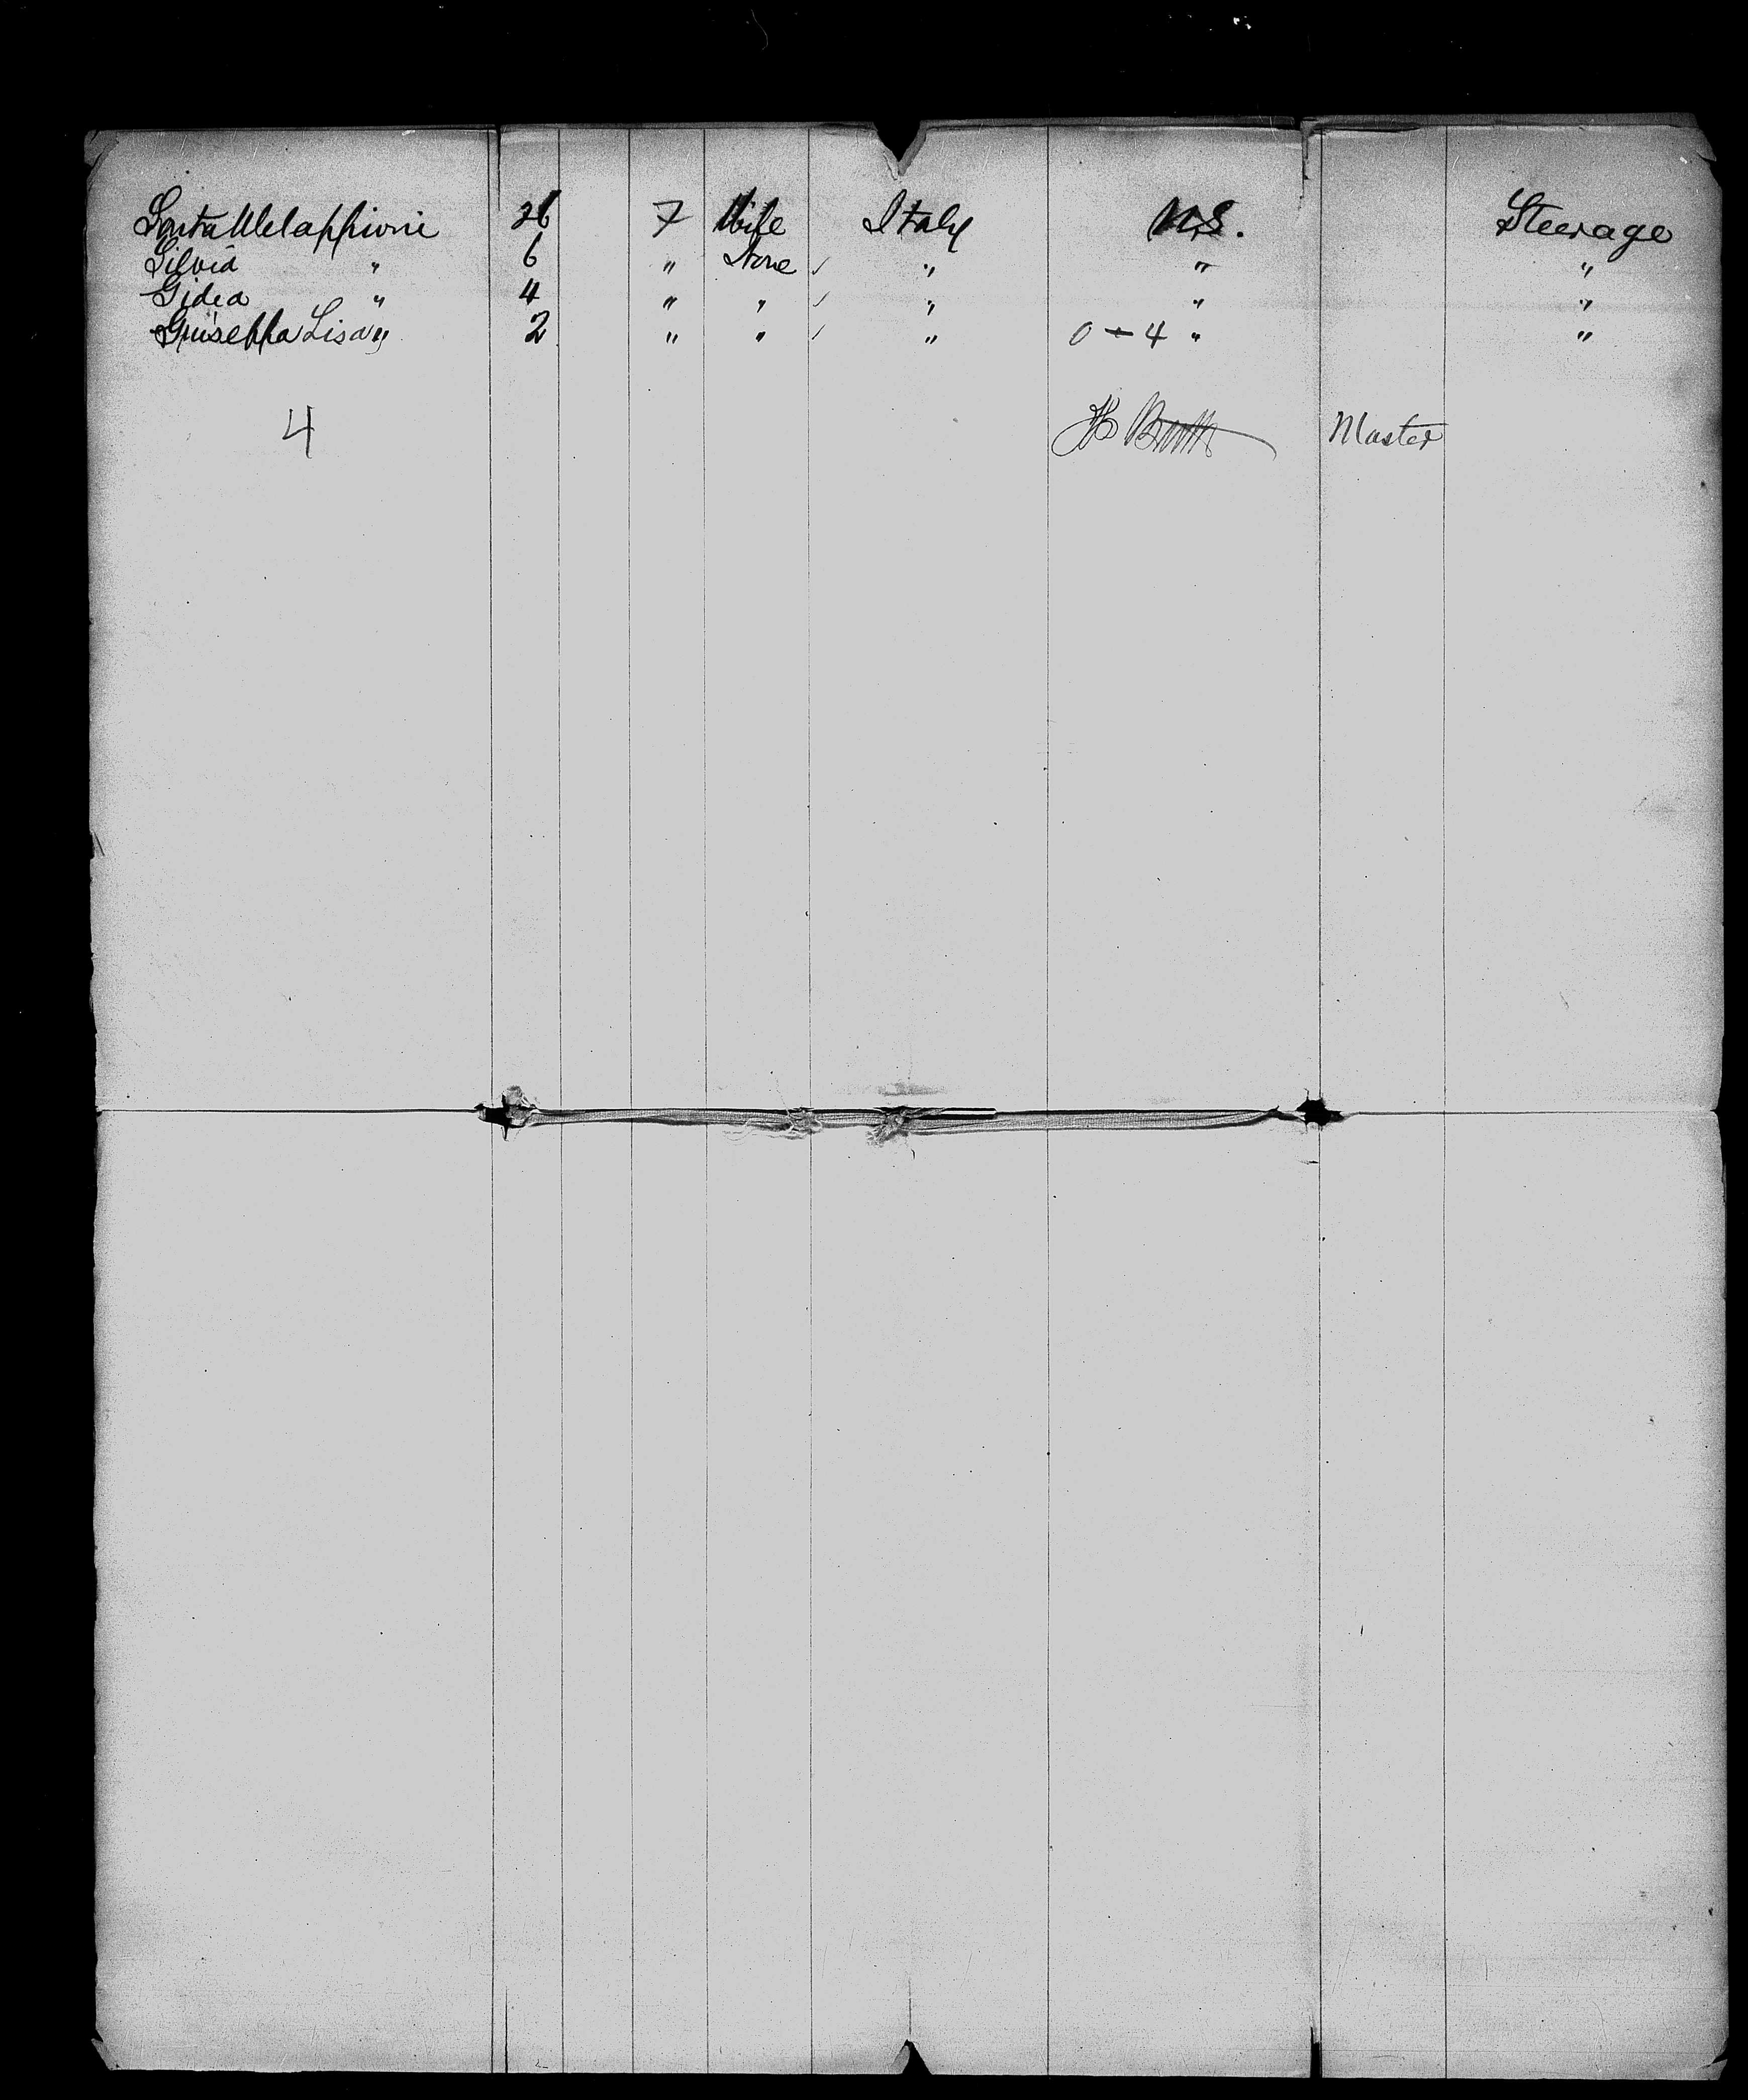 Santa Melappioni 26 7 Wife Italy U.S. Steerage
Silvia " 6 " None ✓ " " "
Gidea " 4 " " ✓ " " "
Guiseppa Lisa " 2 " " ✓ " 0 - 4 " "
4 Master